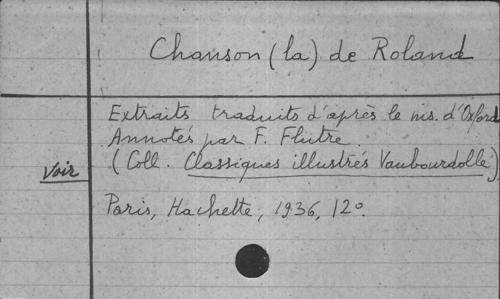 Chanson (la) de Roland
Extraits traduits d'après le ms. d'Oxford
Annotés par F. Flutre.
(Coll. Classiques illustrés Vaubourdolle)
Voir
Paris, Hachette, 1936, 12°.